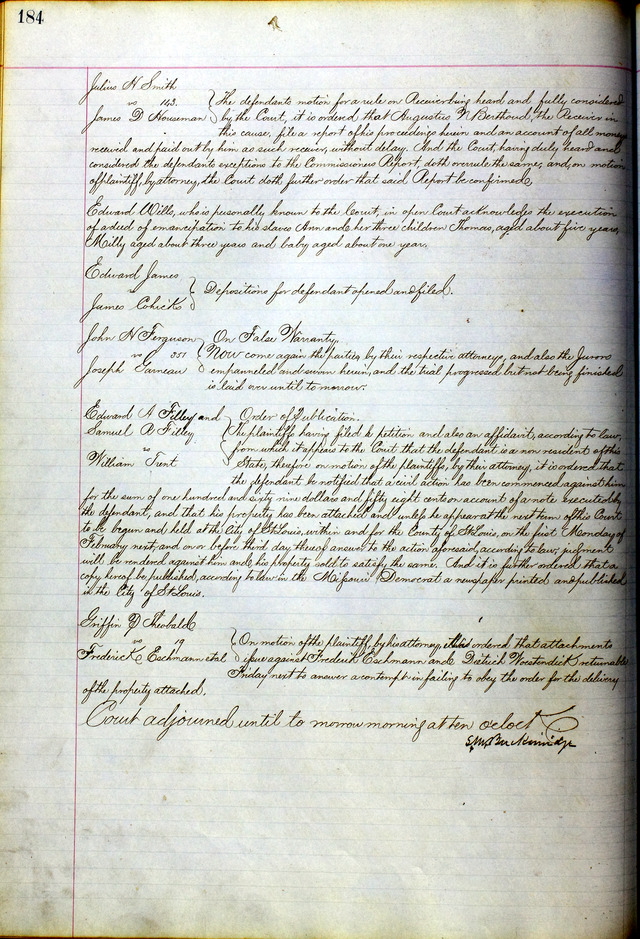 184
Julius H Smith
vs 143.
James D Houseman
The defendants motion for a rule on Receiver being heard and fully considered
by the Court, it is ordered that Augustus N Berthoud, the Receiver in
this cause, file a report of his proceedings herein and an account of all moneys
received and paid out by him as such receiver, without delay. And the Court, having duly heard and
considered the defendants exceptions to the Commissioners Report, doth overrule the same; and, on motion
of plaintiff, by attorney, the Court doth further order that said Report be confirmed.
Edward Wills, who is personally known to the Court, in open Court acknowledges the execution
of a deed of emancipation to his slaves Ann and her three children Thomas, aged about five years,
Milly aged about three years and baby aged about one year.
Edward James
vs
James Cohick
Depositions for defendant opened and filed.
John H Ferguson
vs 351
Joseph Garneau
On False Warranty.
Now come again the parties by their respective attorneys, and also the Jurors
empanneled and sworn herein, and the trial progressed but not being finished
is laid over until to morrow.
Edward A Filley and
Samuel A Filley
vs
William Trent
Order of Publication.
The plaintiffs having filed a petition and also an affidavit, according to law,
from which it appears to the Court that the defendant is a non resident of this
State, therefore on motion of the plaintiffs, by their attorney, it is ordered that
the defendant be notified that a civil action has been commenced against him
for the sum of one hundred and sixty nine dollars and fifty eight cents on account of a note executed by
the defendant, and that his property has been attached and unless he appear at the next term of this Court
to be begun and held at the City of St Louis, within and for the County of St Louis, on the first Monday of
February next, and on or before third day thereof answer to the action aforesaid, according to law, judgment
will be rendered against him and his property sold to satisfy the same. And it is further ordered that a
copy hereof be published, according to law in the Missouri Democrat a newspaper printed and published
in the City of St Louis.
Griffin D Theobald
vs 19
Frederick Eschmann et al
On motion of the plaintiff, by his attorney, it is ordered that attachments
issue against Frederick Eschmann and Dietrich returnable
Friday next to answer a contempt in failing to obey the order for the delivery
of the property attached.
Court adjourned until to morrow morning at ten oclock
S M Breckinridge